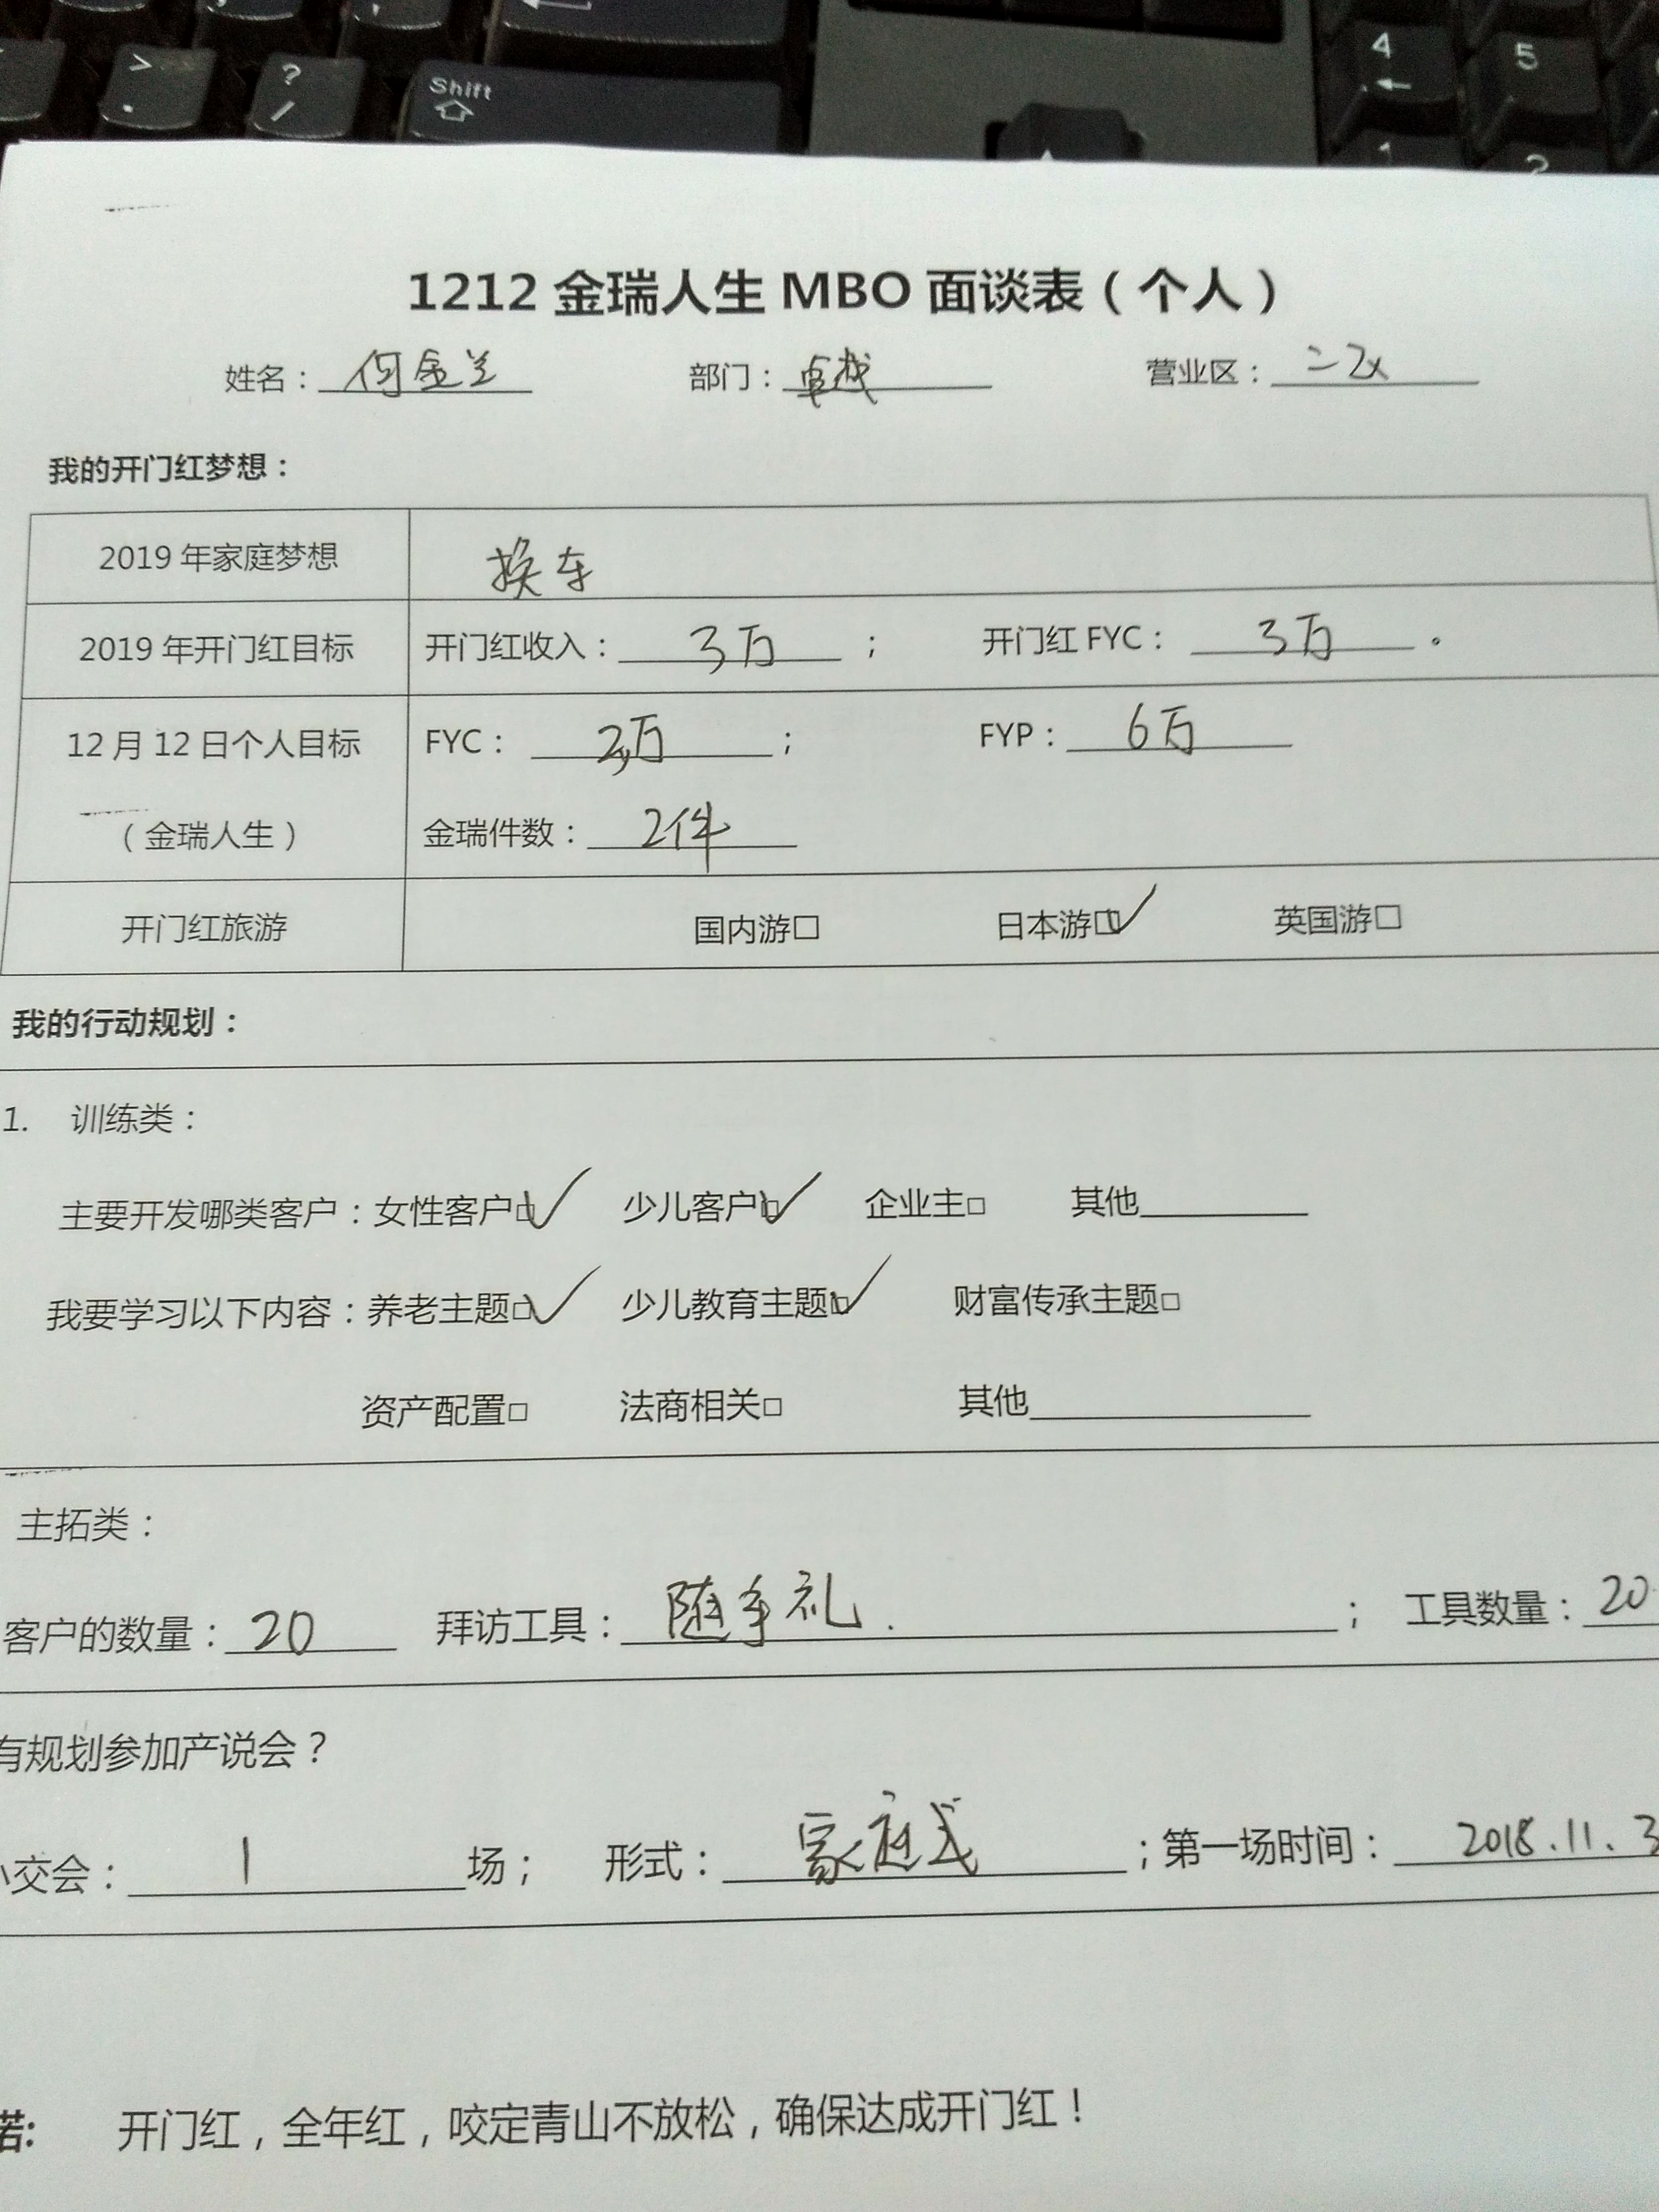 Shift
4
5
1
2
1212 金瑞人生 MBO 面谈表（个人）
姓名：何金兰 部门：卓越 营业区：二区
我的开门红梦想：
2019 年家庭梦想 换车
2019 年开门红目标 开门红收入：3万； 开门红 FYC：3万。
12 月 12 日个人目标 FYC：2万； FYP：6万
（金瑞人生） 金瑞件数：2件
开门红旅游 国内游□ 日本游□✓ 英国游□
我的行动规划：
1. 训练类：
主要开发哪类客户：女性客户□✓ 少儿客户□✓ 企业主□ 其他
我要学习以下内容：养老主题□✓ 少儿教育主题□✓ 财富传承主题□
资产配置□ 法商相关□ 其他
主拓类：
客户的数量：20 拜访工具：随手礼.； 工具数量：20
有规划参加产说会？
交会：1场； 形式：家庭式；第一场时间：2018.11.3
诺: 开门红，全年红，咬定青山不放松，确保达成开门红！